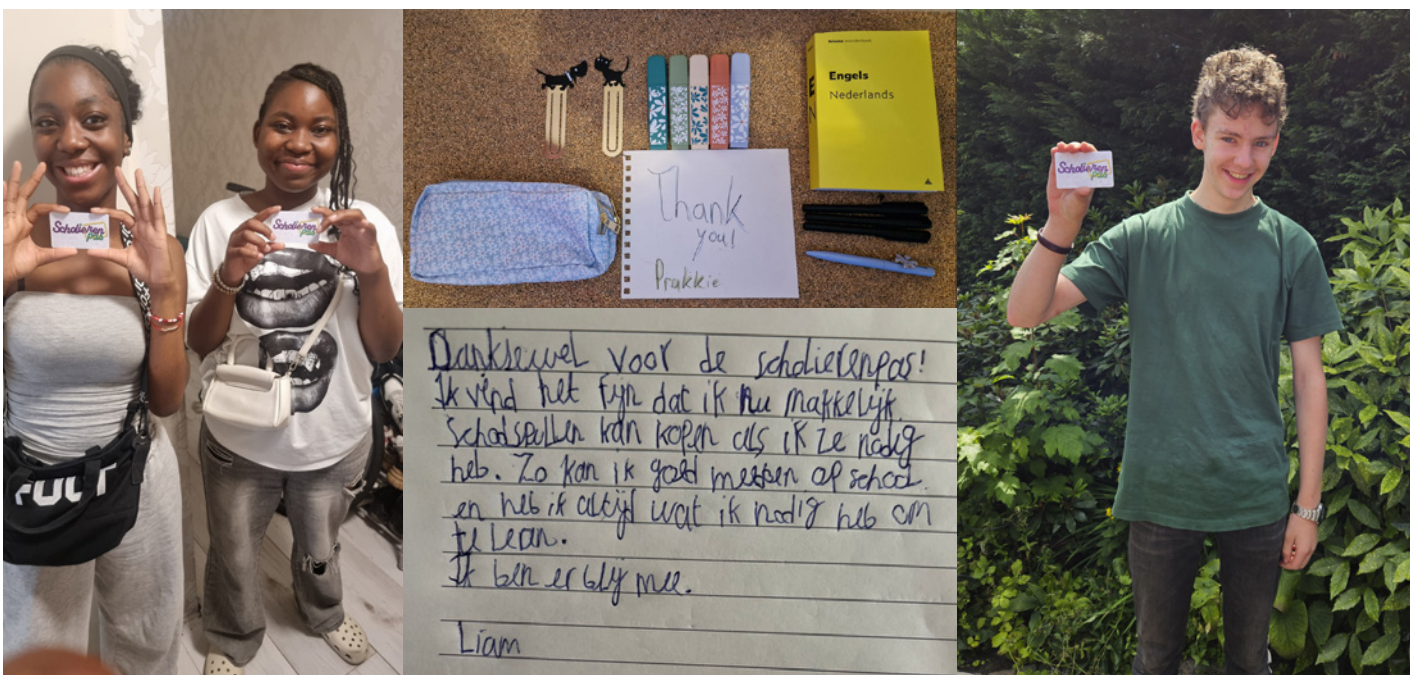 Scholieren
pas
Scholieren
pas
FUCT
Engels
Nederlands
Thank
you!
Prakkie
Dankjewel voor de scholierenpas!
Ik vind het fijn dat ik nu makkelijk
schoolspullen kan kopen als ik ze nodig
heb. Zo kan ik goed meedoen op school
en heb ik altijd wat ik nodig heb om
te leren.
Ik ben er blij mee.
Liam
Scholieren
pas